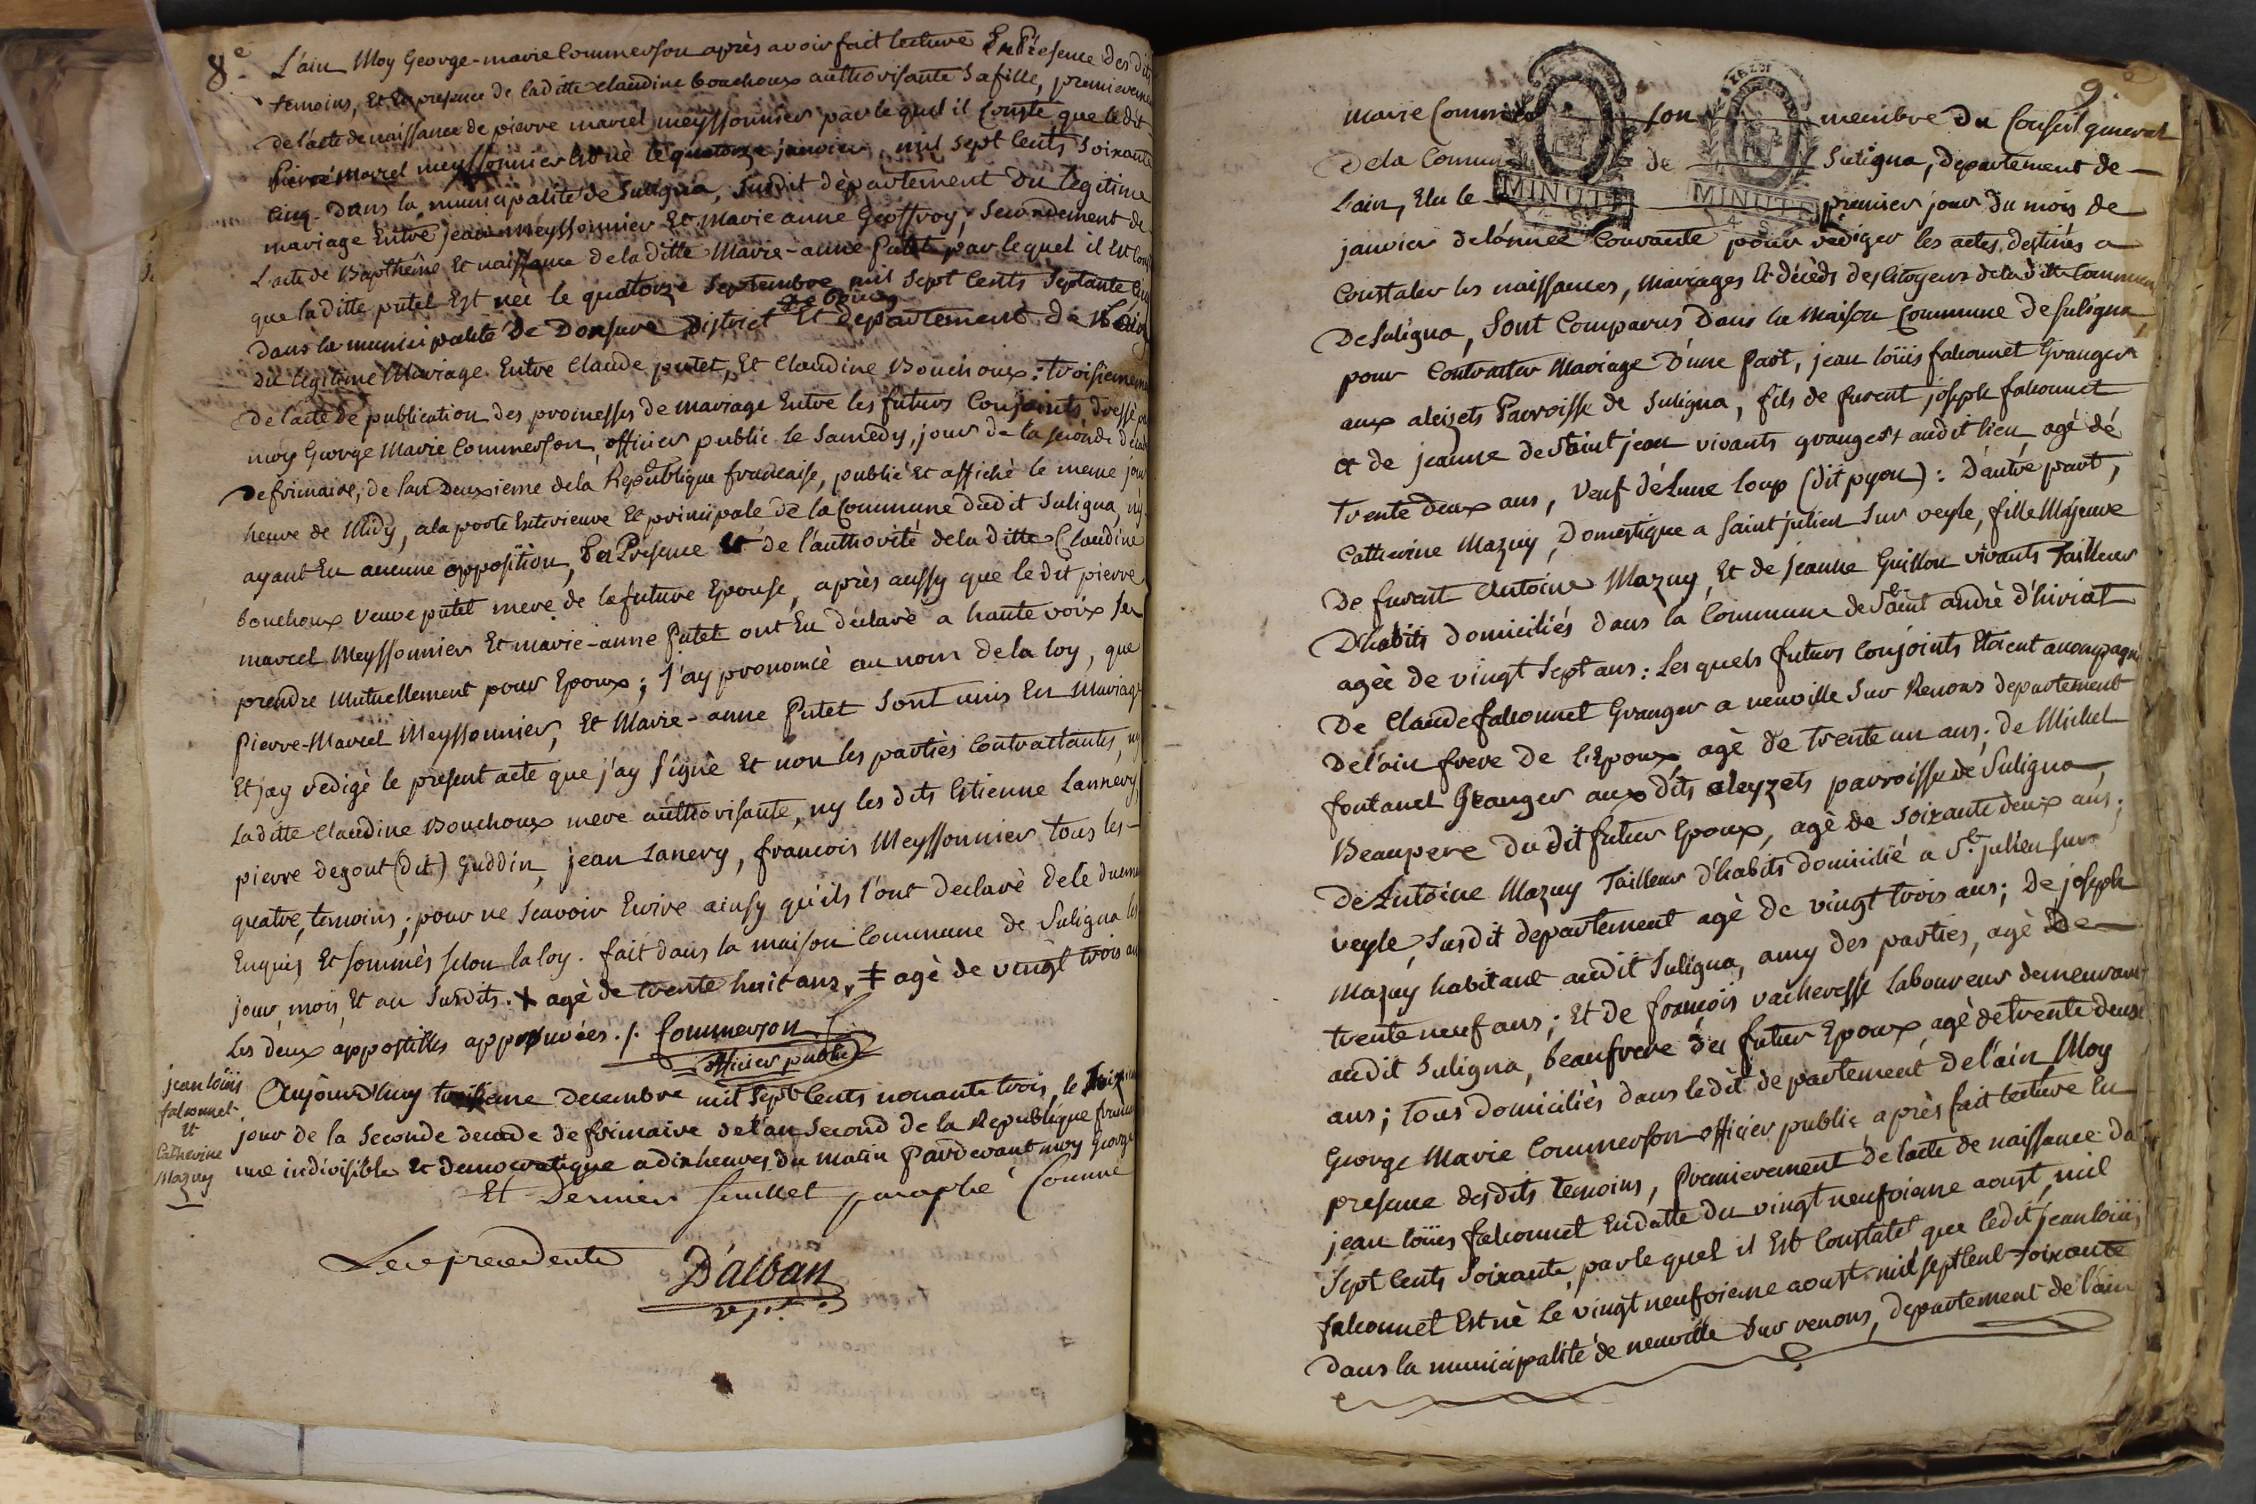 8e.
L'ain Moy George-marie Commerson après avoir fait lecture En Présence des dits
temoins, Et En presence de la ditte claudine bouchoux authorisante Sa fille, premierement
de l'acte de naissance de pierre marcel meyssonnier par le quel il Conste que le dit
Pierre Marcel meyssonnier Est né le quatorze janvier, mil sept Cents Soixante
Cinq dans la municipalité de Suligna, Susdit département du legitime
mariage Entre jean meyssonnier Et Marie anne Geoffroy, Secondement de
L'acte de Baptheme Et naissance de la ditte Marie-anne Putet par lequel il Est
que la ditte putet Est née le quatorze Septembre mil Sept Cents Septante
de bourg
dans la municipalité de Donsure District Et departement de L'ain
du legitime Mariage Entre Claude putet, Et Claudine Bouchoux: troisiemement
De l'acte de publication des promesses de mariage Entre les futurs Conjoints dressé par
moy George Marie Commerson, officier public le Samedy, jour de la seconde decade
de frimaire, de l'an Deuxieme de la Republique francaise, publié Et affiché le meme jour
heure de Midy, a la porte Exterieure Et principale de la Commune dudit Suligna, n'y
ayant Eu aucune opposition, En Presence Et de l'authorité de la ditte Claudine
bouchoux veuve putet mere de la future Epouse, après aussy que le dit pierre
marcel Meyssonnier Et marie-anne putet ont Eu déclaré a haute voix Se
prendre Mutuellement pour Epoux; J'ay prononcé au nom de la loy, que
Pierre-Marcel Meyssonnier, Et Marie-anne Putet Sont unis En Mariage
Et j'ay redigé le present acte que j'ay Signé Et non les parties Contractantes, ny
la ditte Claudine Bouchoux mere authorisante, ny les dits Etienne Lannery,
pierre degout (dit) Guddin, jean Lanery, francois Meyssonnier tous les
quatre, temoins; pour ne Scavoir Ecrire ainsy qu'ils l'ont declaré de ce duement
Enquis, Et sommés selon la loy. fait dans la maison Commune de Suligna les
jour, mois, Et an Susdits. + agé de trente huit ans, ‡ agé de vingt trois ans
les deux appostilles approuvées. /. Commerson
officier public
jean loüis
falconnet
Et
Catherine
Mazuy
Aujourd'huy treisieme decembre mil Sept Cents nonante trois, le
jour de la Seconde decade de frimaire de l'an Second de la Republique
une indivisible Et democratique a dix heures du matin Pardevant moy George
Et Dernier feuillet paraphé Comme
Les precedents
D'alban
9e.
marie Commer son membre du Conseil general
De la Commune de Suligna, departement de
L'ain, Elu le premier jour du mois de
MINUTE
MINUTE
janvier de l'année Courante pour rédiger les actes, destinés a
Constater les naissances, Mariages Et décéds des Citoyens de la ditte Commune
De Suligna, Sont Comparus Dans la Maison Commune de Suligna,
pour Contracter Mariage D'une Part, jean loüis falconnet Granger
aux aleizets Parroisse de Suligna, fils de furent joseph falconnet
et de jeanne de Saint jean vivants grangers audit lieu agé de
trente deux ans, Veuf de Lune loup (dit pyon): D'autre part,
Catherine Mazuy, Domestique a Saint julien Sur veyle, fille Majeure
De furent Antoine Mazuy, Et de jeanne Guillon vivants Tailleurs
D'habits domiciliés dans la Commune de Saint andré d'huiriat
agée de vingt Sept ans: Les quels futurs Conjoints Etoient accompagnés
De Claude falconnet Granger a neuville Sur Renons departement
De l'ain frere de l'Epoux agé de trente un ans; de Michel
fontanel Granger aux dits aleyzets parroisse de Suligna,
Beaupere du dit futur Epoux, agé de Soixante deux ans;
De Antoine Mazuy Tailleur d'habits domicilié a St. julien Sur
veyle, Susdit departement agé de vingt trois ans; De joseph
Mazuy habitant audit Suligna, amy des parties, agé De
trente neuf ans; Et de françois vacheresse Laboureur demeurant
audit Suligna, beaufrere du futur Epoux, agé de trente deux
ans; Tous domiciliés dans le dit departement de l'ain Moy
George Marie Commerson officier public, après fait lecture En
presence desdits temoins, Premierement de l'acte de naissance de
jean loüis falconnet En datte du vingt neufvieme aoust, mil
Sept Cents Soixante, par le quel il Est Constaté que le dit jean loüis
falconnet Est né Le vingt neufvieme aoust mil sept Cent Soixante
Dans la municipalité de neuville Sur renons, departement de l'ain